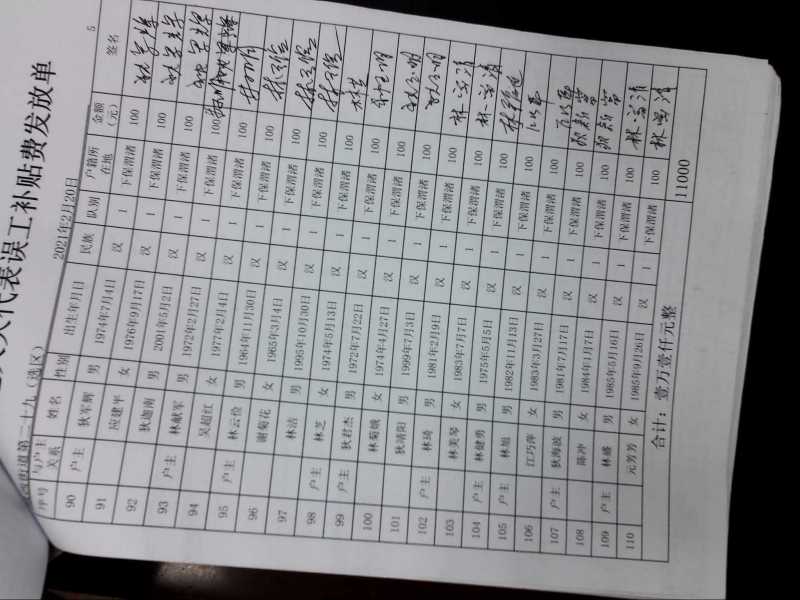 代表误工补贴费发放单
街道第二十九（选区） 2021年2月20日 5
序号 与户主关系 姓名 性别 出生年月日 民族 队别 户籍所在地 金额（元） 签名
90 户主 狄军辉 男 1974年7月4日 汉 1 下保渭渚 100
91 应建平 女 1976年9月17日 汉 1 下保渭渚 100
92 狄迦南 男 2001年5月2日 汉 1 下保渭渚 100
93 户主 林献军 男 1972年2月27日 汉 1 下保渭渚 100
94 吴超红 女 1977年2月4日 汉 1 下保渭渚 100
95 户主 林云俭 男 1964年11月30日 汉 1 下保渭渚 100
96 谢菊花 女 1965年3月4日 汉 1 下保渭渚 100
97 林洁 男 1995年10月30日 汉 1 下保渭渚 100
98 户主 林芝 女 1974年5月13日 汉 1 下保渭渚 100
99 户主 狄君杰 男 1972年7月22日 汉 1 下保渭渚 100
100 林菊娥 女 1974年4月27日 汉 1 下保渭渚 100
101 狄靖阳 男 1999年7月3日 汉 1 下保渭渚 100
102 户主 林琦 男 1981年2月9日 汉 1 下保渭渚 100
103 林美琴 女 1983年7月7日 汉 1 下保渭渚 100
104 户主 林健勇 男 1975年5月5日 汉 1 下保渭渚 100
105 户主 林旭 男 1982年11月13日 汉 1 下保渭渚 100
106 江巧萍 女 1983年3月27日 汉 1 下保渭渚 100
107 户主 狄海波 男 1981年7月17日 汉 1 下保渭渚 100
108 陈冲 女 1984年1月7日 汉 1 下保渭渚 100
109 户主 林盛 男 1985年5月16日 汉 1 下保渭渚 100
110 元男男 女 1985年9月26日 汉 1 下保渭渚 100
合计：壹万壹仟元整 11000